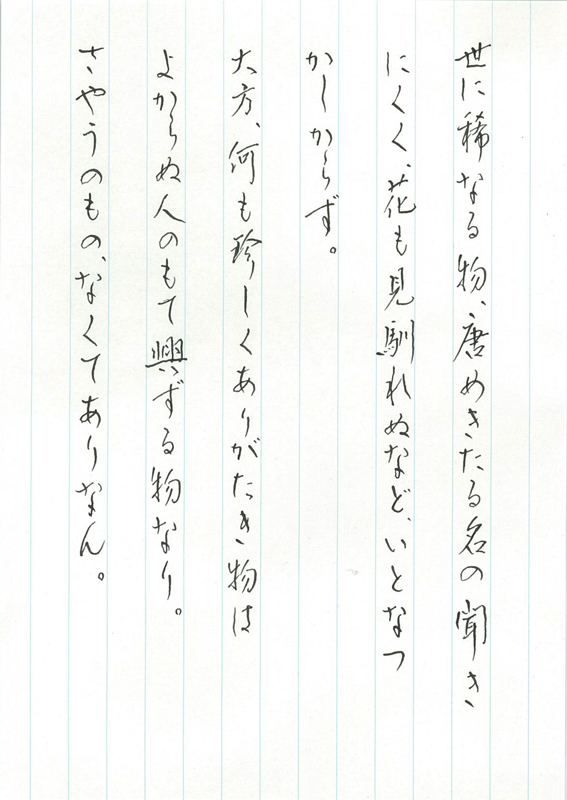 世に稀なる物、唐めきたる名の聞き
にくく、花も見馴れぬなど、いとなつ
かしからず。
大方、何も珍しくありがたき物は
よからぬ人のもて興ずる物なり。
さやうのもの、なくてありなん。